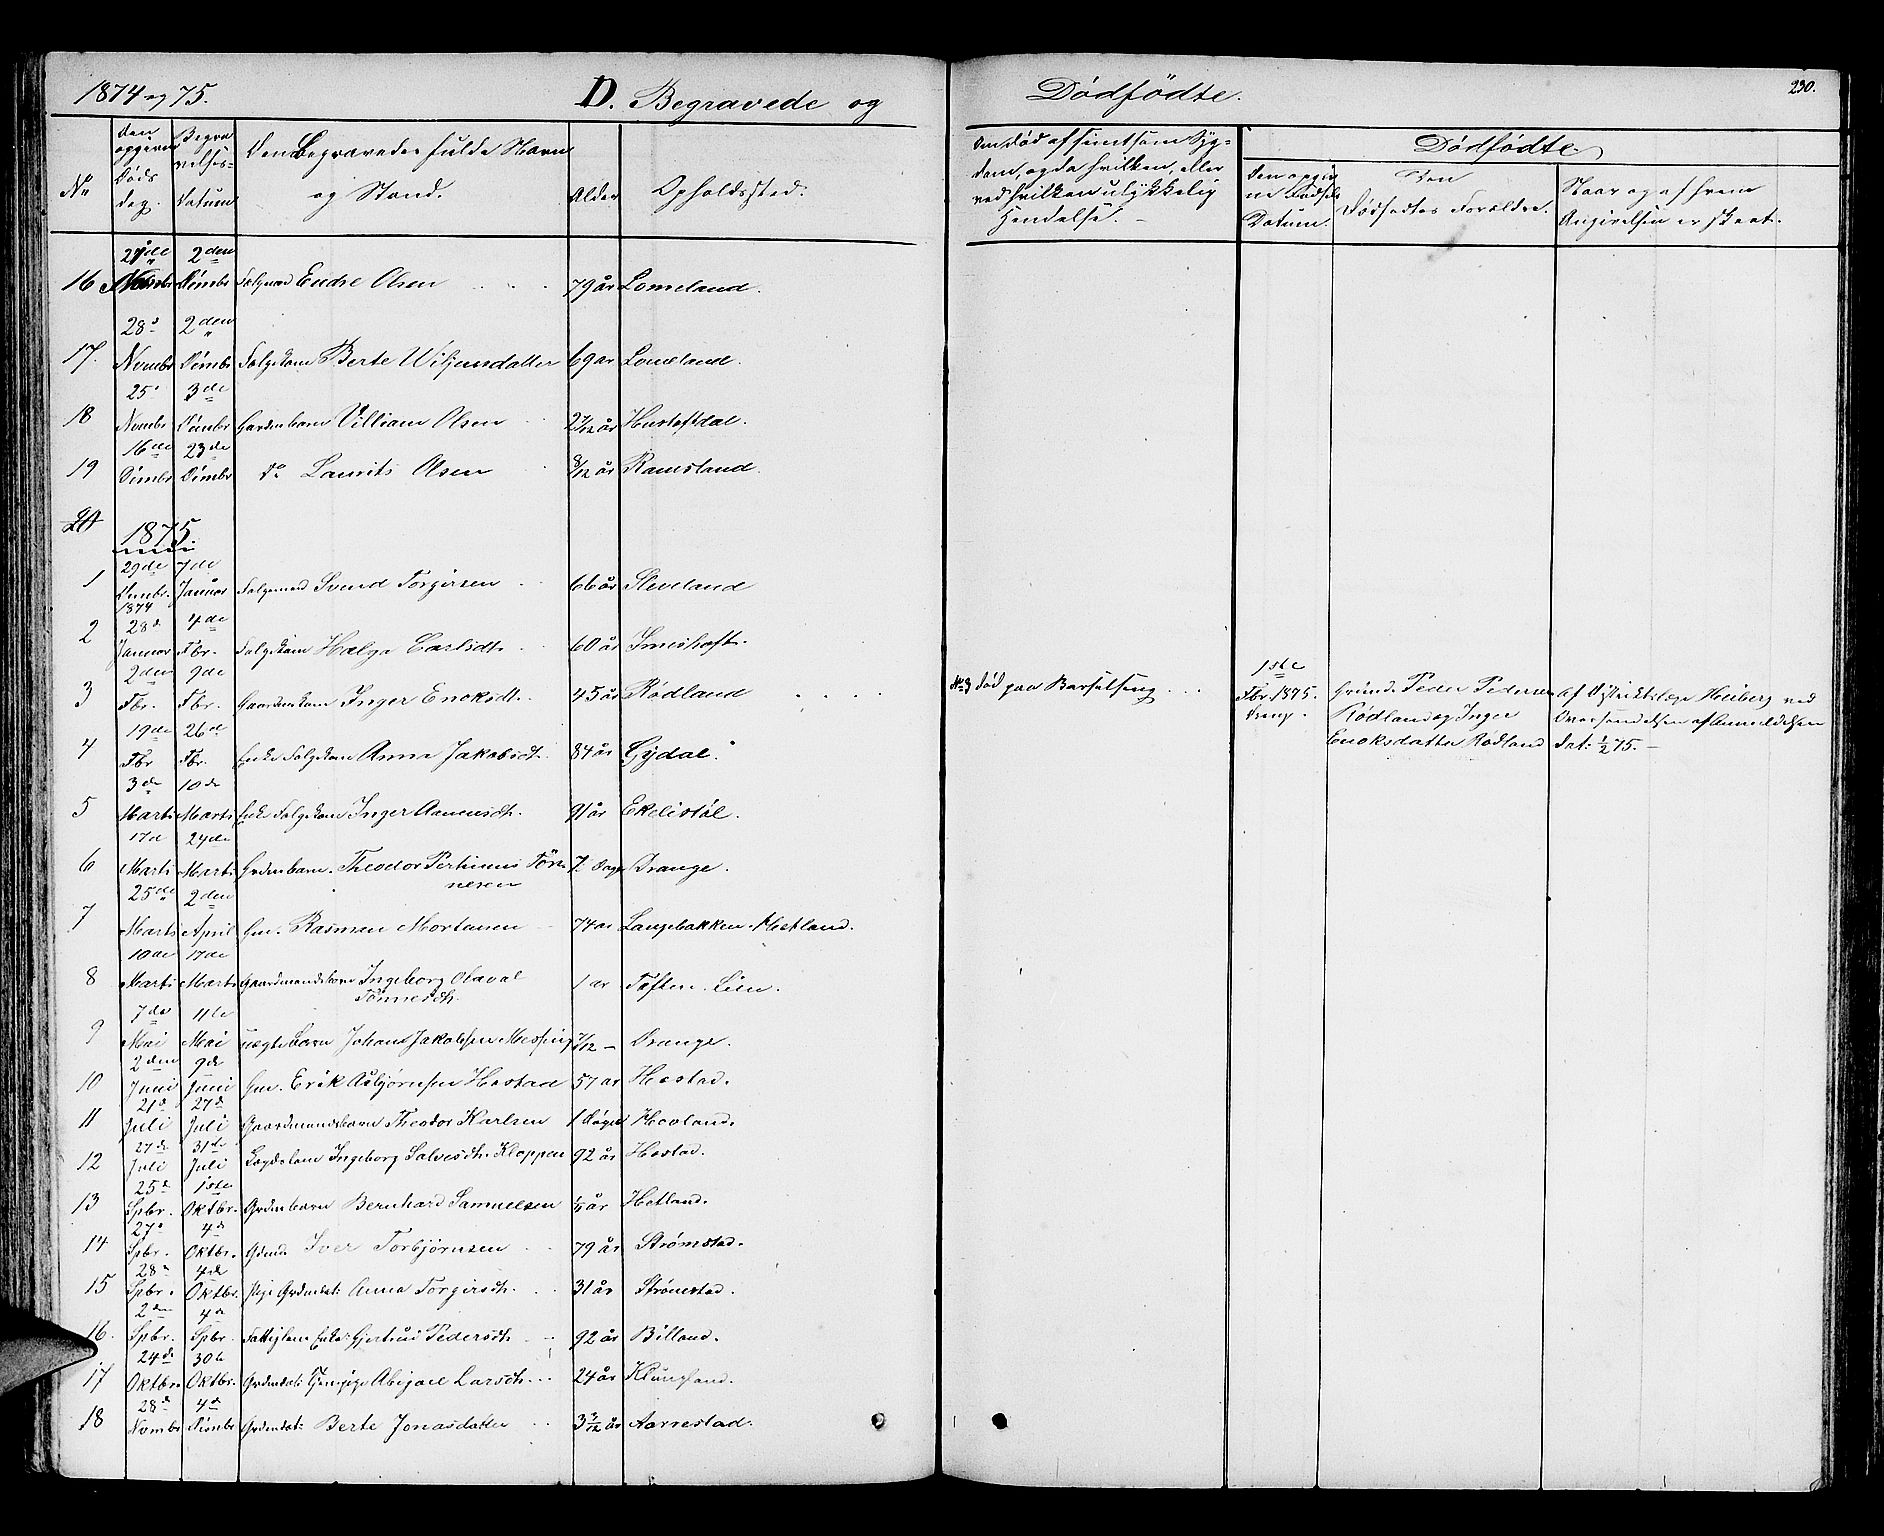 1874 og 75.
D. Begravede og
Dødfødte.
230.
No
Den opgivne Døds dag.
Begravelses-Datum
Den Begravedes fulde Navn og Stand.
Alder
Opholdssted.
Om død af smitsom Syg-
dom, og da hvilken, eller
ved hvilken ulykkelig
Hændelse.
Dødfødte.
Den opgivne Fødsels Datum.
Den Dødfødtes Forældre.
Naar og af hvem
Angivelsen er skeet.
16 Novmbr 2den Dcmbr Folgmand Endre Olsen 79 år Lomeland.
17. 28d Novmbr 2den Dcmbr Folgekone Berte Wiljumsdatter 69 ar Lomeland.
18 25d Novmbr 3de Dcmbr Gardmbarn Villiam Olsen 2 7/12 år Hustoftdal.
19 16de Dcmbr 23de Dcmbr do Laurits Olsen 8/12 år Ramsland.
20
1875.
1 29de Dcmbr. 1874 7de Januar Folgemand Svend Torgersen 66 år Sleveland
2 28d Januar 4de Fbr. Folgekone Helga Carlsdt. 60 år
3 2den Fbr. 9de Fbr. Gaardmkone Inger Enoksdt. 45 år Rødland
No 3 død paa Barselseng
1ste Fbr. 1875. Dreng.
Grmd: Peder Pedersen
Rødland og Inger
Enoksdatter Rødland
Af Distriktslæge Heiberg ved
Oversendelsen af Anmeldelsen
dat: 1/2 75.
4 19de Fbr 26de Fbr. Enke Folgekone Anna Jakobsdt. 84 år Gydal.
5 3de Marts 10de Marts Enke Folgekone Inger Aanensdt. 91 år Ekelistøl.
6 17d Marts 24de Marts Grdmbarn. Theodor Pertinius Tøn-
nesen 7 Dage Drange.
7 25de Marts 2den April Gm. Rasmus Mortensen 74 ar Langebakken Mestland.
8 10de Marts 17de Marts Gaardmandsbarn Ingeborg Olaval
Tønnesdt. 1 ar Toften. Lien.
9 7de Mai 11te Mai uægte Barn Johan Jakobsen Messing 7/12 Drange.
10 2den Juni 9de Juni Gm. Erik Asbjørnsen Hestad 57 ar Hestad.
11 21d Juli 27d Juli Gaardmandsbarn Theodor Karlsen 1 Døgn Hovland.
12 27de Juli 31te Juli Lægdslem Ingeborg Salvesdt. Kloppen 92 år Hestad.
13 25d Spbr. 1ste Oktbr. Grdmbarn Bernhard Samuelsen år Hetland.
14 27d Spbr. 4d Oktbr. Gdmd. Iver Torbjørnsen 79 år Strømstad.
15 28d Spbr. 4de Oktbr. Pige Grdmdat: Anna Torgersdt. 31 år Strømstad.
16. 2den Spbr. 4de Spbr. Fattiglem Enke Gjertrud Pedersdt. 92 år Billand.
17 24de Oktbr. 30te Oktbr. Grdmdat: Abigael Larsdt. 24 år Klungland.
18 28d Novmbr 4de Dcmbr Grdmdat: Berte Jonasdatter 3 3/12 år Aarrestad.